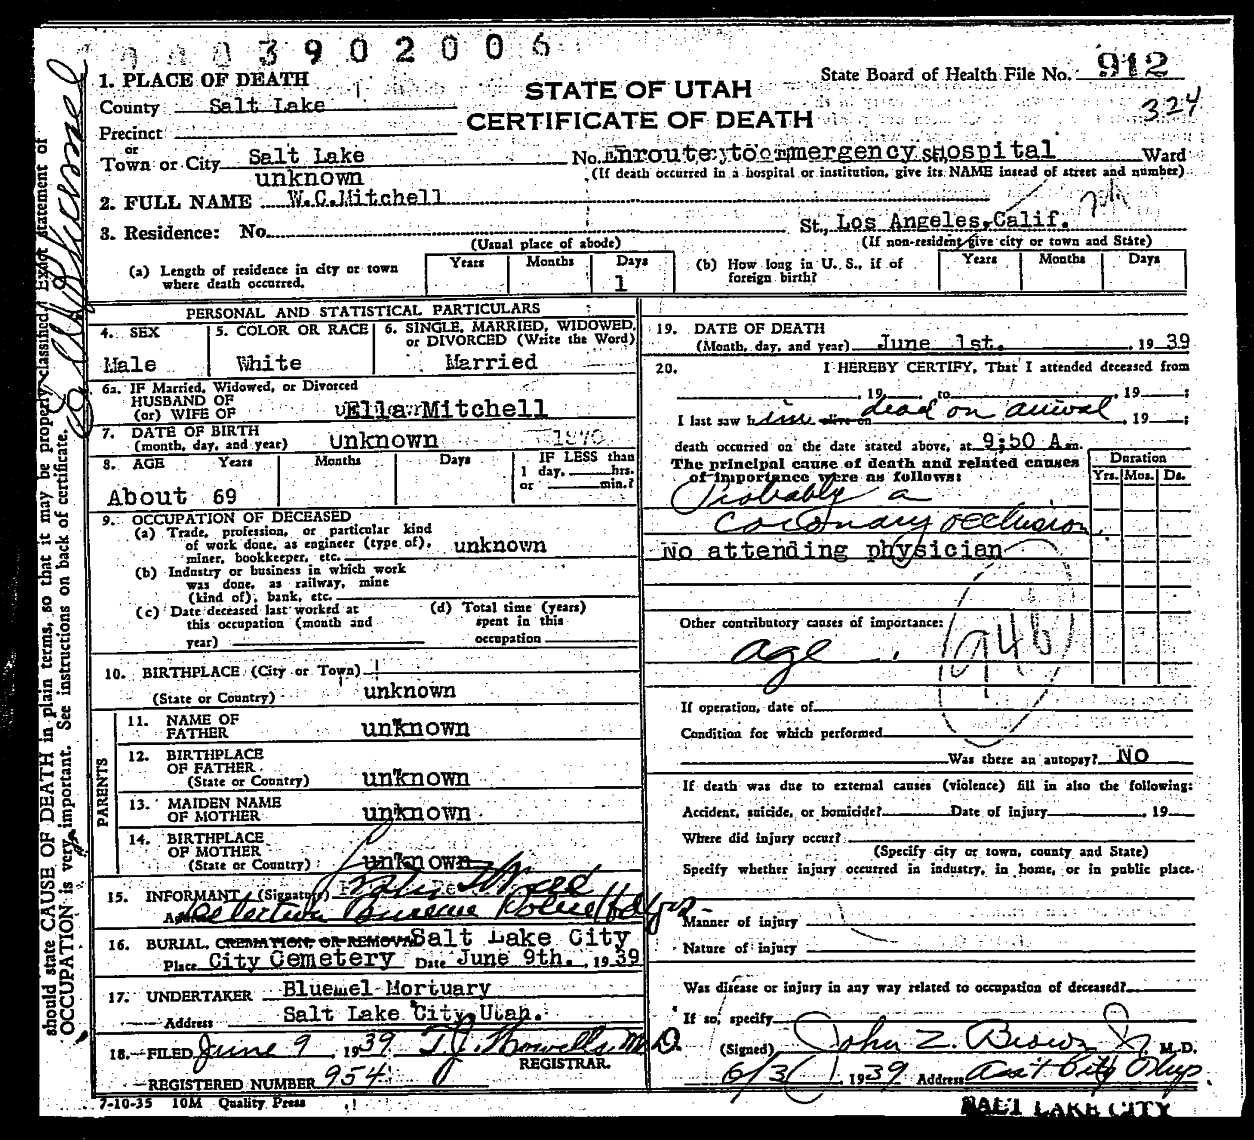 0003902006
State Board of Health File No. 912
324
1. PLACE OF DEATH
County Salt Lake
STATE OF UTAH
CERTIFICATE OF DEATH
Precinct
or
Town or City Salt Lake No. Enroute to emergency Hospital Ward
(If death occurred in a hospital or institution, give its NAME instead of street and number)
unknown
2. FULL NAME W.C.Mitchell
3. Residence: No. St., Los Angeles, Calif.
(Usual place of abode) (If non-resident give city or town and State)
(a) Length of residence in city or town where death occurred. Years Months Days 1
(b) How long in U. S., if of foreign birth? Years Months Days
PERSONAL AND STATISTICAL PARTICULARS
4. SEX Male
5. COLOR OR RACE White
6. SINGLE, MARRIED, WIDOWED, or DIVORCED (Write the Word) Married
6a. IF Married, Widowed, or Divorced
HUSBAND OF
(or) WIFE OF Ella Mitchell
7. DATE OF BIRTH
(month, day, and year) unknown 1870
8. AGE Years Months Days IF LESS than
1 day, hrs.
or min.?
About 69
9. OCCUPATION OF DECEASED
(a) Trade, profession, or particular kind
of work done, as engineer (type of),
miner, bookkeeper, etc. unknown
(b) Industry or business in which work
was done, as railway, mine
(kind of), bank, etc.
(c) Date deceased last worked at
this occupation (month and
year)
(d) Total time (years)
spent in this
occupation
10. BIRTHPLACE (City or Town)
(State or Country) unknown
PARENTS
11. NAME OF
FATHER unknown
12. BIRTHPLACE
OF FATHER
(State or Country) unknown
13. MAIDEN NAME
OF MOTHER unknown
14. BIRTHPLACE
OF MOTHER
(State or Country) unknown
15. INFORMANT (Signature)
Address Detective Bureau Police Hdqrs-
16. BURIAL, CREMATION, OR REMOVAL Salt Lake City
Place City Cemetery Date June 9th. , 1939
17. UNDERTAKER Bluemel Mortuary
Address Salt Lake City, Utah.
18. FILED June 9, 1939 T.J. Howells, M.D.
REGISTRAR.
REGISTERED NUMBER 954
7-10-35 10M Quality Press
19. DATE OF DEATH
(Month, day, and year) June 1st. , 1939
20. I HEREBY CERTIFY, That I attended deceased from
, 19 to , 19 ;
I last saw him alive on dead on arrival , 19 ;
death occurred on the date stated above, at 9:50 A.m.
The principal cause of death and related causes
of importance were as follows:
Duration
Yrs. Mos. Ds.
Probably a
coronary occlusion
No attending physician
Other contributory causes of importance:
age
94b
If operation, date of
Condition for which performed
Was there an autopsy? No
If death was due to external causes (violence) fill in also the following:
Accident, suicide, or homicide? Date of injury , 19
Where did injury occur?
(Specify city or town, county and State)
Specify whether injury occurred in industry, in home, or in public place.
Manner of injury
Nature of injury
Was disease or injury in any way related to occupation of deceased?
If so, specify
(Signed) John Z. Brown Jr. M.D.
6/3 , 1939 Address Ass't City Phys.
SALT LAKE CITY
should state CAUSE OF DEATH in plain terms, so that it may be properly classified. Exact statement of
OCCUPATION is very important. See instructions on back of certificate.